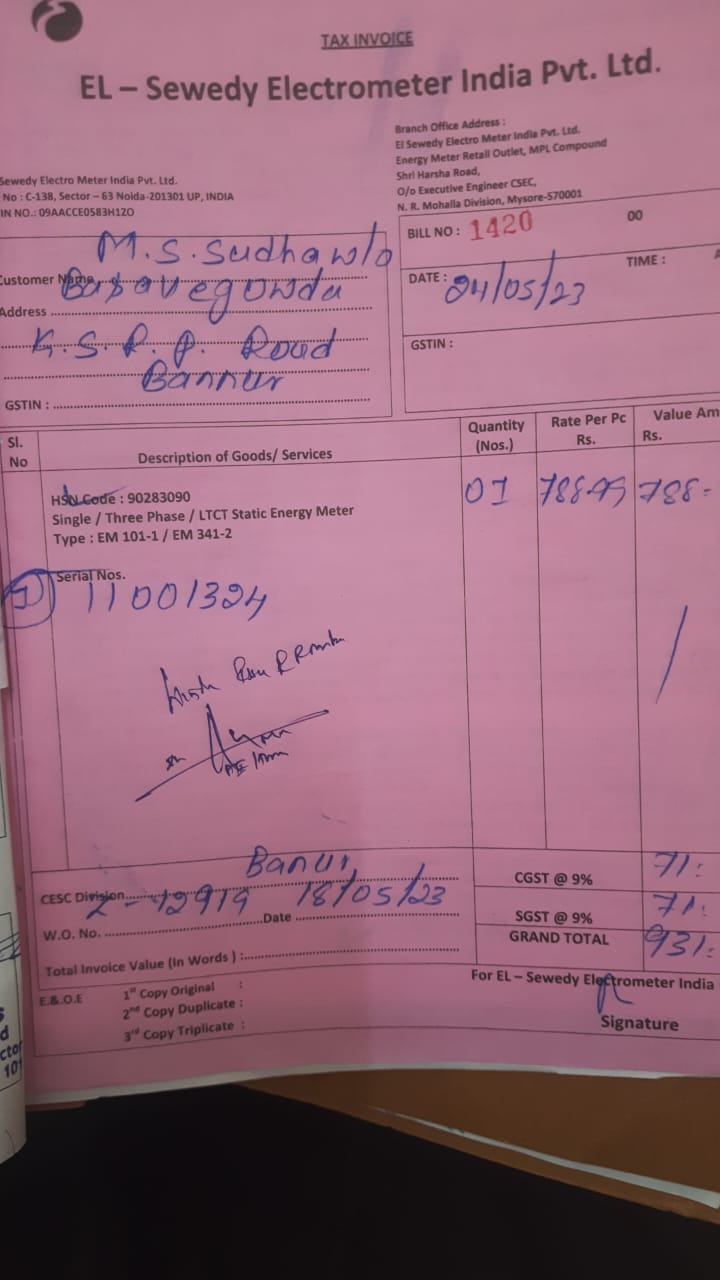 TAX INVOICE
EL – Sewedy Electrometer India Pvt. Ltd.
Sewedy Electro Meter India Pvt. Ltd.
No : C-138, Sector – 63 Noida-201301 UP, INDIA
IN NO.: 09AACCE0583H1ZO
Branch Office Address :
El Sewedy Electro Meter India Pvt. Ltd.
Energy Meter Retail Outlet, MPL Compound
Shri Harsha Road,
O/o Executive Engineer CSEC,
N. R. Mohalla Division, Mysore-570001
BILL NO : 1420 00
DATE : 24/05/23 TIME :
GSTIN :
M.S. Sudha w/o
Customer Name Basavegowda
Address
K.S.R.P. Road
Bannur
GSTIN :
Sl. No Description of Goods/ Services Quantity (Nos.) Rate Per Pc Rs. Value Am Rs.
HSN Code : 90283090 01 788-99 788-
Single / Three Phase / LTCT Static Energy Meter
Type : EM 101-1 / EM 341-2
Serial Nos.
1 11001324
CESC Division Banur
W.O. No. 2-12919 Date 18/05/23
Total Invoice Value (In Words ) :
CGST @ 9% 71:
SGST @ 9% 71:
GRAND TOTAL 931:
E.&.O.E 1st Copy Original :
2nd Copy Duplicate :
3rd Copy Triplicate :
For EL – Sewedy Electrometer India
Signature